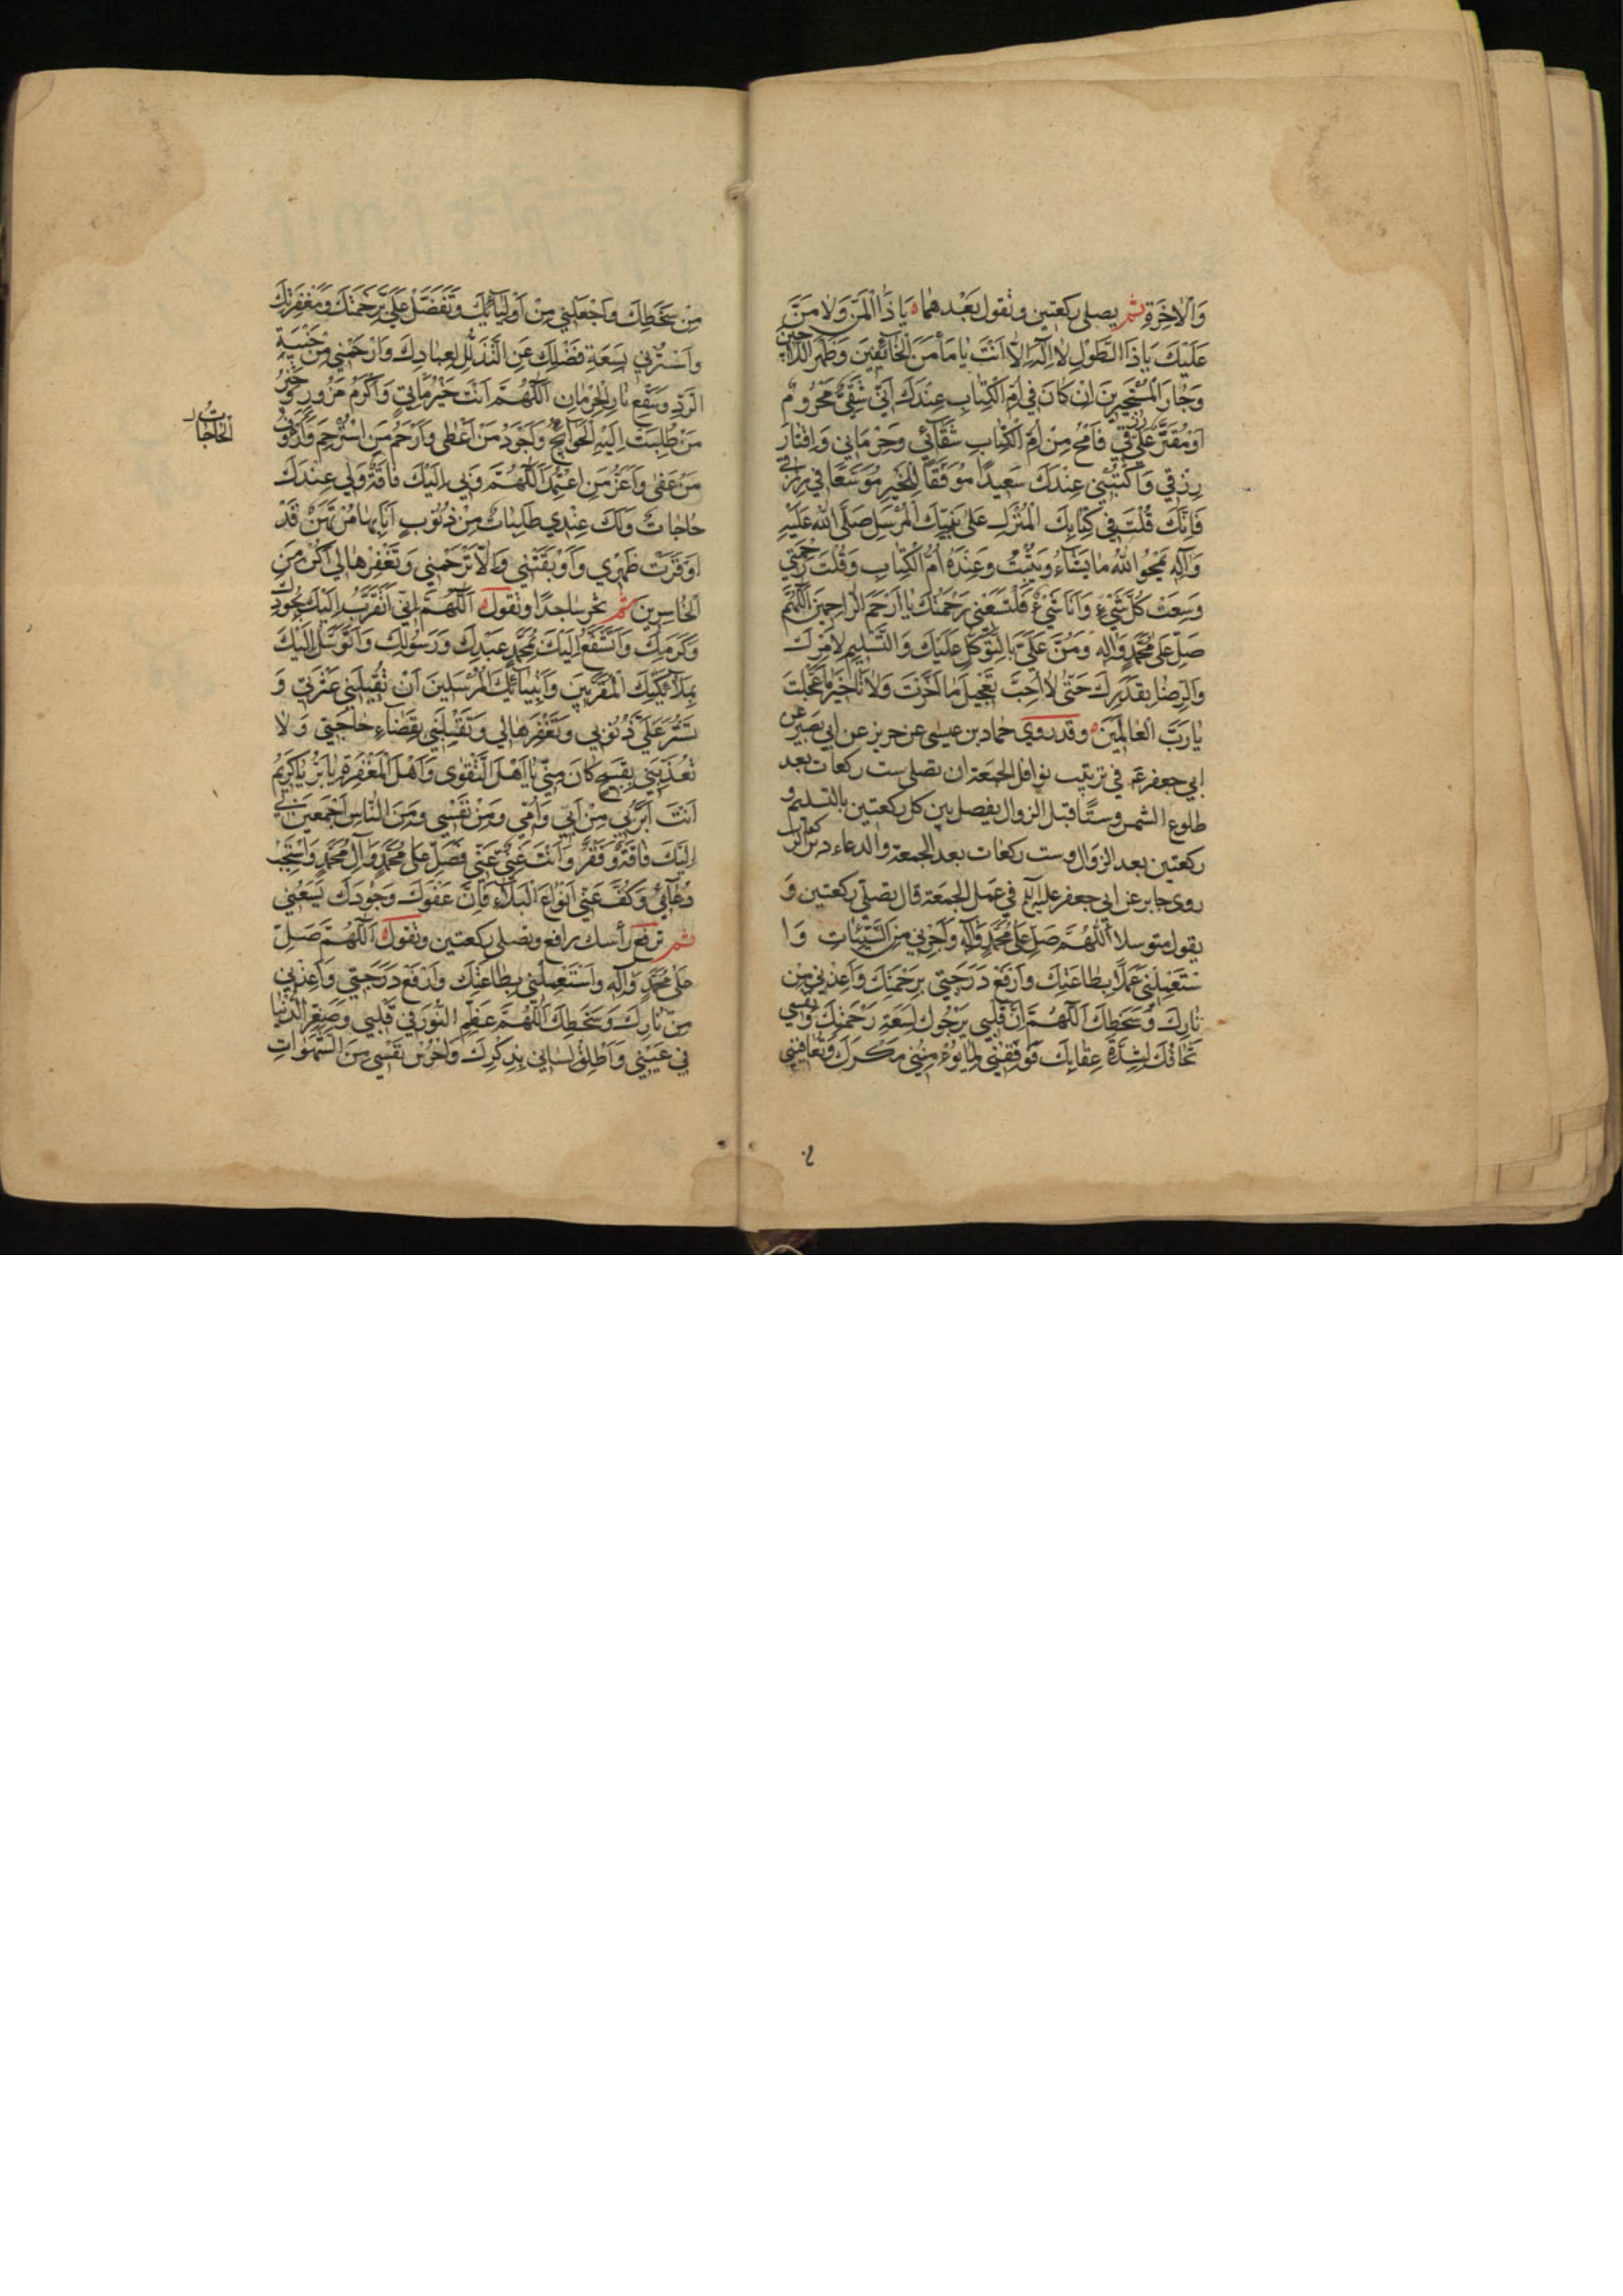 وَالْاٰخِرَةِ ثم يصلى ركعتين وتقول بَعْدهمٰا يَا ذَا الْمَنِّ وَلٰا مَنَّ
عَلَيْكَ يَا ذَا الطَّوْلِ لٰا اِلٰهَ اِلّٰا اَنْتَ يٰا مَأْمَنَ الْخٰائِفِينَ وَظَهْرَ اللّٰاجِينَ
وَجٰارَ الْمُسْتَجِيرِينَ اِنْ كٰانَ فِي اُمِّ الْكِتٰابِ عِنْدَكَ اَنِّي شَقِيٌّ مَحْرُومٌ
اَوْ مُقَتَّرٌ عَلَيَّ رِزْقِي فَامْحُ مِنْ اُمِّ الْكِتٰابِ شَقٰائِي وَحِرْمٰانِي وَاِقْتٰارَ
رِزْقِي وَاكْتُبْنِي عِنْدَكَ سَعِيدًا مُوَفَّقًا لِلْخَيْرِ مُوَسَّعًا فِي رِزْقِي
فَاِنَّكَ قُلْتَ فِي كِتٰابِكَ الْمُنْزَلِ عَلىٰ نَبِيِّكَ الْمُرْسَلِ صَلَّى اللهُ عَلَيْهِ
وَآلِهِ يَمْحُوا اللهُ مٰا يَشٰاءُ وَيُثْبِتُ وَعِنْدَهُ اُمُّ الْكِتٰابِ وَقُلْتَ رَحْمَتِي
وَسِعَتْ كُلَّ شَيْءٍ وَاَنَا شَيْءٌ فَلْتَسَعْنِي رَحْمَتُكَ يٰا اَرْحَمَ الرّٰاحِمِينَ اَللّٰهُمَّ
صَلِّ عَلىٰ مُحَمَّدٍ وَاٰلِهِ وَمُنَّ عَلَيَّ بِالتَّوَكُّلِ عَلَيْكَ وَالتَّسْلِيمِ لِاَمْرِكَ
وَالرِّضٰا بِقَدَرِكَ حَتّٰى لٰا اُحِبَّ تَعْجِيلَ مٰا اَخَّرْتَ وَلٰا تَأْخِيرَ مٰا عَجَّلْتَ
يٰا رَبَّ الْعٰالَمِينَ وقد روي حماد بن عيسى عن حريز عن ابي بصير عن
ابي جعفر ع في ترتيب نوافل الجمعة ان تصلى ست ركعات بعد
طلوع الشمس وستًا قبل الزوال يفصل بين كل ركعتين بالتسليم و
ركعتين بعد الزوال وست ركعات بعد الجمعة والدعاء دبر الركعات
روى جابر عن ابي جعفر عليه في عمل الجمعة قال تصلي ركعتين وَ
يقول متوسلا اَللّٰهُمَّ صَلِّ عَلىٰ مُحَمَّدٍ وَآلِهِ وَاَجِرْنِي مِنَ السَّيِّئَاتِ وَا
سْتَعْمِلْنِي عَمَلًا بِطٰاعَتِكَ وَارْفَعْ دَرَجَتِي بِرَحْمَتِكَ وَاَعِذْنِي مِنْ
نٰارِكَ وَسَخَطِكَ اَللّٰهُمَّ اِنَّ قَلْبِي يَرْجُوكَ لِسَعَةِ رَحْمَتِكَ وَنَفْسِي
تَخٰافُكَ لِشِدَّةِ عِقٰابِكَ فَوَفِّقْنِي لِمٰا يُؤْمِنُنِي مَكْرَكَ وَتُعٰافِيَنِي
مِنْ سَخَطِكَ وَاجْعَلْنِي مِنْ اَوْلِيٰائِكَ وَتَفَضَّلْ عَلَيَّ بِرَحْمَتِكَ وَمَغْفِرَتِكَ
وَاسْتُرْنِي بِسَعَةِ فَضْلِكَ عَنِ التَّذَلُّلِ لِعِبٰادِكَ وَارْحَمْنِي مِنْ خَيْبَةِ
الرَّدِّ وَسَفْعِ نٰارِ الْحِرْمٰانِ اَللّٰهُمَّ اَنْتَ خَيْرُ مَأْتِيٍّ وَاَكْرَمُ مَزُورٍ وَخَيْرُ
مَنْ طُلِبَتْ اِلَيْهِ الْحَوٰائِجُ وَاَجْوَدُ مَنْ اَعْطٰى وَاَرْحَمُ مَنِ اسْتُرْحِمَ وَاَرْؤَفُ
الْحٰاجٰاتُ
مَنْ عَفٰى وَاَعَزُّ مَنِ اعْتُمِدَ اَللّٰهُمَّ وَبِي اِلَيْكَ فٰاقَةٌ وَلِي عِنْدَكَ
حٰاجٰاتٌ وَلَكَ عِنْدِي طَلِبٰاتٌ مِنْ ذُنُوبٍ اَنَا بِهٰا مُرْتَهَنٌ قَدْ
اَوْقَرَتْ ظَهْرِي وَاَوْبَقَتْنِي وَاِلّٰا تَرْحَمْنِي وَتَغْفِرْهٰا لِي اَكُنْ مِنَ
الْخٰاسِرِينَ ثم تخر ساجدًا وتقول اَللّٰهُمَّ اِنِّي اَتَقَرَّبُ اِلَيْكَ بِجُودِكَ
وَكَرَمِكَ وَاَتَشَفَّعُ اِلَيْكَ بِمُحَمَّدٍ عَبْدِكَ وَرَسُولِكَ وَاَتَوَسَّلُ اِلَيْكَ
بِمَلٰائِكَتِكَ الْمُقَرَّبِينَ وَاَنْبِيٰائِكَ الْمُرْسَلِينَ اَنْ تُقِيلَنِي عَثْرَتِي وَ
تَسْتُرَ عَلَيَّ ذُنُوبِي وَتَغْفِرَهٰا لِي وَتَقْلِبَنِي بِقَضٰاءِ حٰاجَتِي وَلٰا
تُعَذِّبَنِي بِقَبِيحٍ كٰانَ مِنِّي يٰا اَهْلَ التَّقْوٰى وَاَهْلَ الْمَغْفِرَةِ يٰا بَرُّ يٰا كَرِيمُ
اَنْتَ اَبَرُّ بِي مِنْ اَبِي وَاُمِّي وَمِنْ نَفْسِي وَمِنَ النّٰاسِ اَجْمَعِينَ بِي
اِلَيْكَ فٰاقَةٌ وَفَقْرٌ وَاَنْتَ غَنِيٌّ عَنِّي فَصَلِّ عَلىٰ مُحَمَّدٍ وَآلِ مُحَمَّدٍ وَاسْتَجِبْ
دُعٰائِي وَكُفَّ عَنِّي اَنْوٰاعَ الْبَلٰاءِ فَاِنَّ عَفْوَكَ وَجُودَكَ يَسَعُنِي
ثم ترفع رأسك رافع وتصلى ركعتين وتقول اَللّٰهُمَّ صَلِّ
عَلىٰ مُحَمَّدٍ وَآلِهِ وَاسْتَعْمِلْنِي بِطٰاعَتِكَ وَارْفَعْ دَرَجَتِي وَاَعِذْنِي
مِنْ نٰارِكَ وَسَخَطِكَ اَللّٰهُمَّ عَظِّمِ النُّورَ فِي قَلْبِي وَصَغِّرِ الدُّنْيٰا
فِي عَيْنِي وَاَطْلِقْ لِسٰانِي بِذِكْرِكَ وَاحْرُسْ نَفْسِي مِنَ الشَّهَوٰاتِ